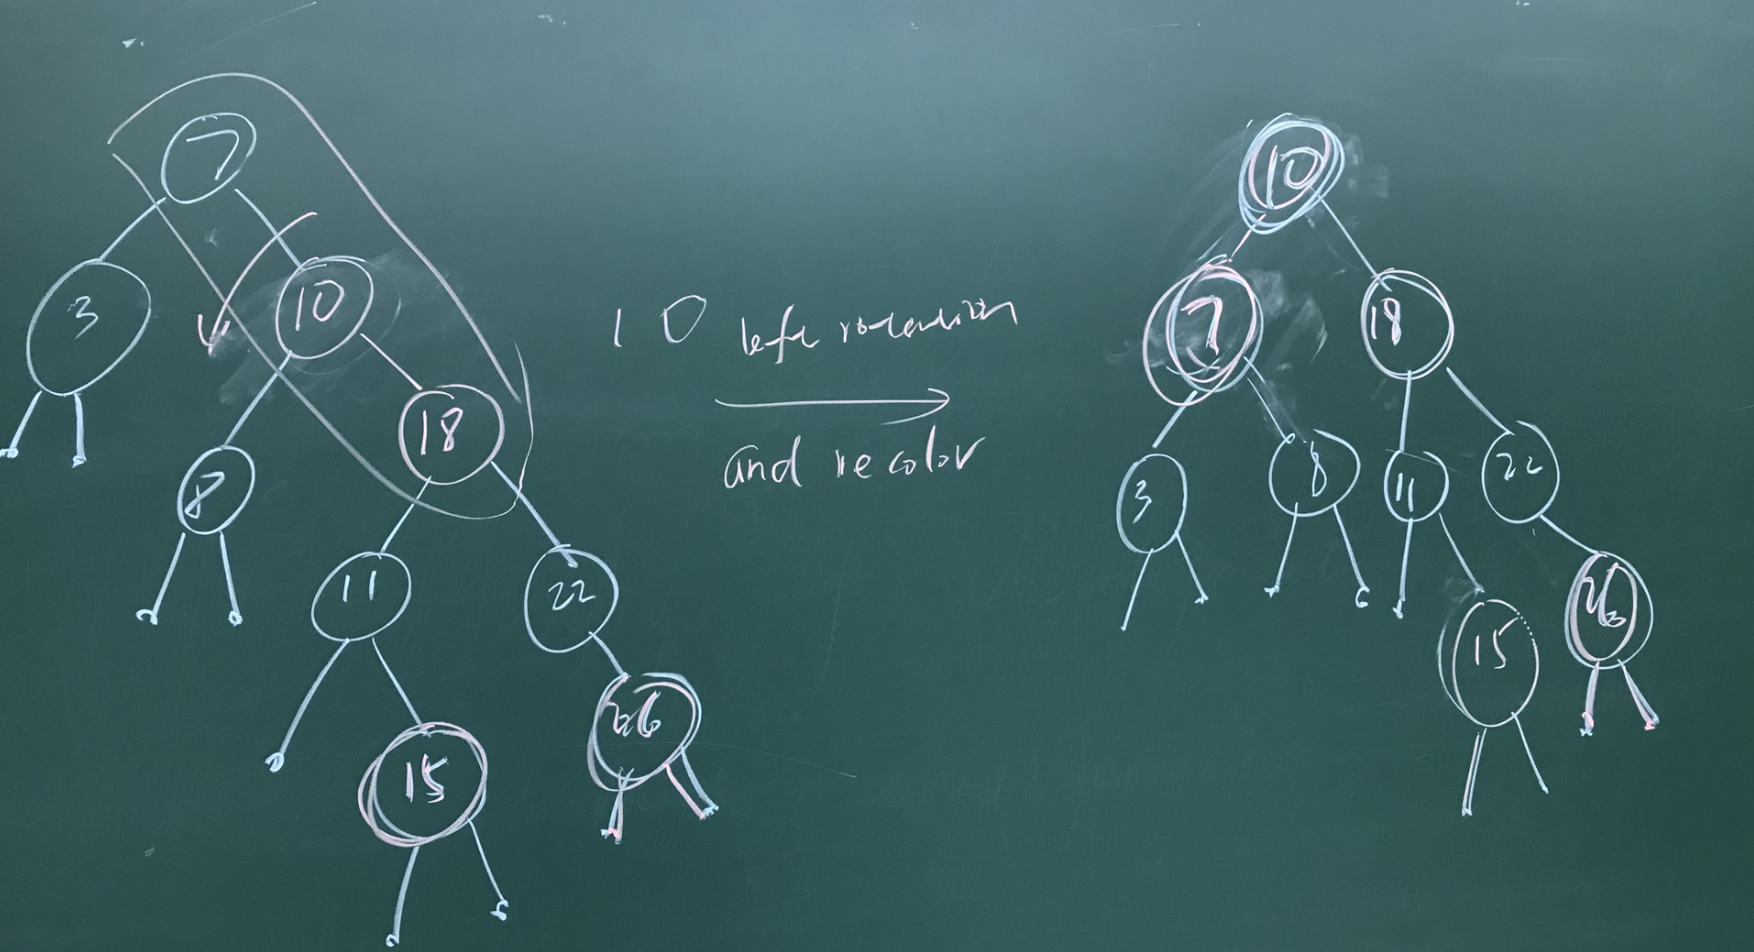 7
3
10
8
18
11
22
15
26
10 left rotation
and recolor
10
7
18
3
8
11
22
15
26